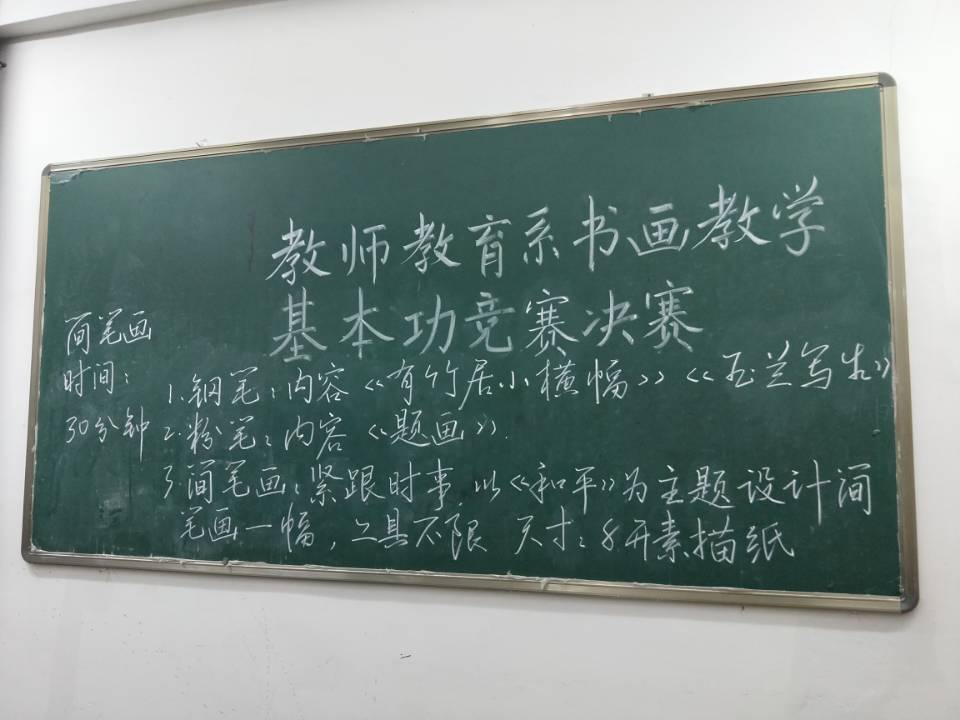 教师教育系书画教学
基本功竞赛决赛
简笔画
时间:
30分钟
1.钢笔:内容《有竹居小横幅》《玉兰写生》
2.粉笔:内容《题画》.
3.简笔画:紧跟时事 以《和平》为主题设计简
笔画一幅,工具不限 尺寸:8开素描纸